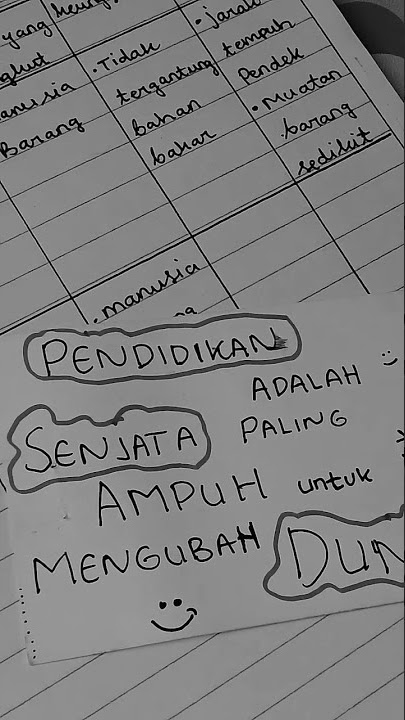 yang
manusia
Barang
• Tidak
tergantung
bahan
bakar
• jarak
tempuh
Pendek
• Muatan
barang
sedikit
• manusia
PENDIDIKAN
ADALAH
SENJATA PALING
AMPUH untuk
MENGUBAH DUN